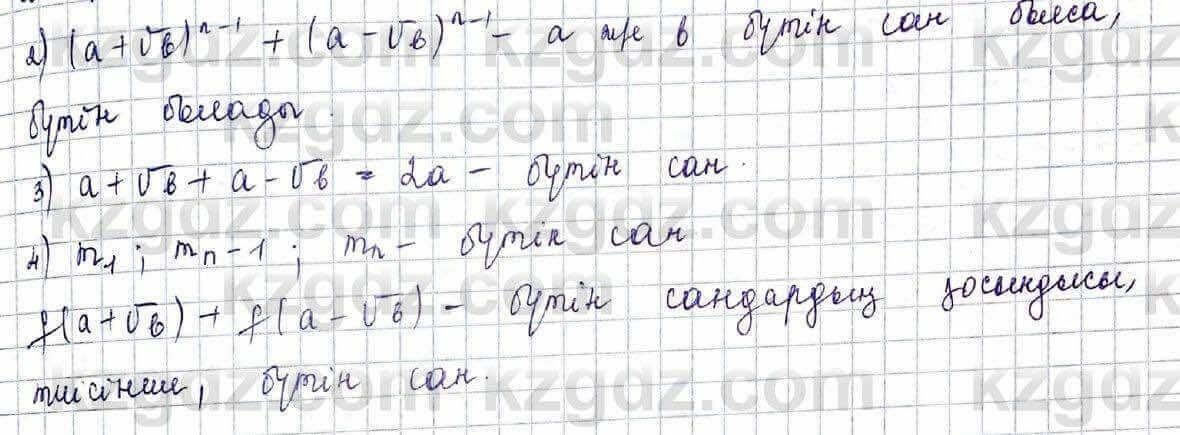 2) (a+√в)ⁿ⁻¹ + (a-√в)ⁿ⁻¹ - a же в бүтін сан болса,
бүтін болады.
3) a+√в + a-√в = 2a - бүтін сан.
4) m₁ ; mₙ-1 ; mₙ - бүтін сан
f(a+√в) + f(a-√в) - бүтін сандардың қосындысы,
тиісінше, бүтін сан.
kzgdz.com